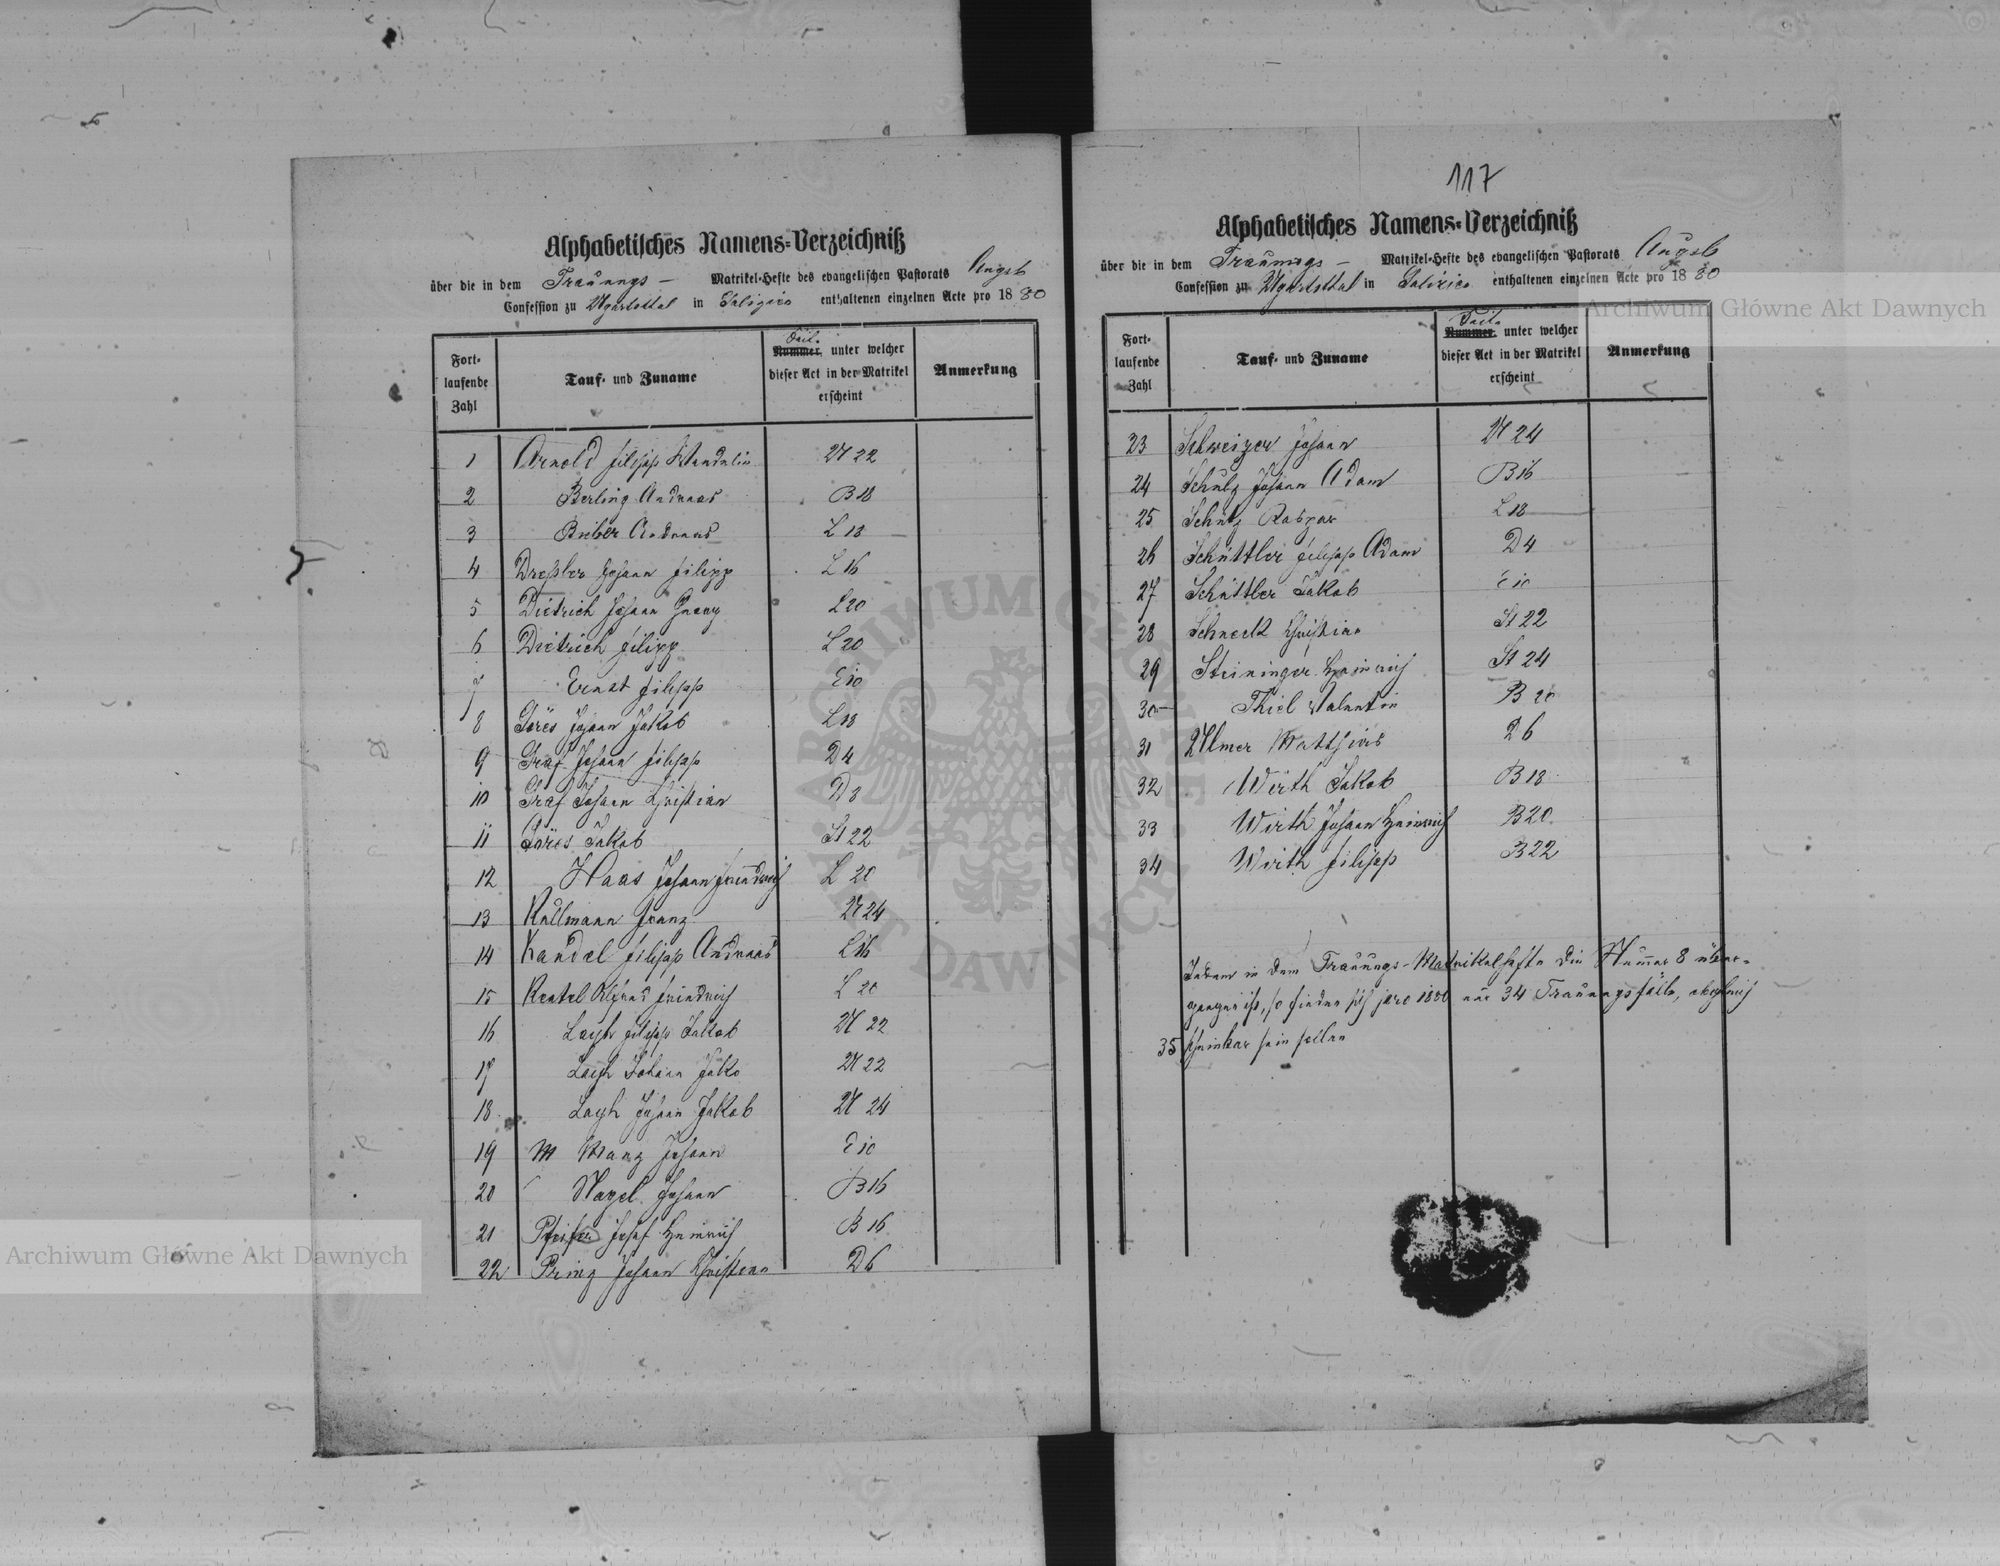 117
Alphabetisches Namens-Verzeichniß
über die in dem Trauungs- Matrikel-Hefte des evangelischen Pastorats Augsb
Confession zu Ugartsttal in Galizien enthaltenen einzelnen Acte pro 1880
Fort-
laufende
Zahl
Tauf- und Zuname
Nummer unter welcher
dieser Act in der Matrikel
erscheint
Anmerkung
1 Arnold Filipp Wendelin U 22
2 Berling Andreas B 18
3 Bieber Andreas L 18
4 Dreßler Johann Filipp L 16
5 Dietrich Johann Georg L 20
6 Dietrich Filipp L 20
7 Ernst Filipp E 10
8 Görés Johann Jakob L 18
9 Graf Johann Filipp D 4
10 Graf Johann Christian D 8
11 Görés Jakob St 22
12 Haas Johann Friedrich L 20
13 Kullmann Franz U 24
14 Kandel Filipp Andreas L 16
15 Friedrich L 20
16 Filipp Jakob U 22
17 Johann Jako U 22
18 Johann Jakob U 24
19 M Manz Johann E 10
20 Nagel Johann B 16
21 Pfeifer Josef Heinrich B 16
22 Prinz Johann Christian D 6
Alphabetisches Namens-Verzeichniß
über die in dem Trauungs- Matrikel-Hefte des evangelischen Pastorats Augsb
Confession zu Ugartsttal in Galizien enthaltenen einzelnen Acte pro 1880
Fort-
laufende
Zahl
Tauf- und Zuname
Nummer unter welcher
dieser Act in der Matrikel
erscheint
Anmerkung
23 Schweizer Johann U 24
24 Schulz Johann Adam B 16
25 Schütz Kaspar L 18
26 Schüttler Filipp Adam D 4
27 Schüttler Jakob E 10
28 Schneck Christian St 22
29 Steininger Heinrich St 24
30 Thiel Valentin B 20
31 Ulmer Matthias D 6
32 Wirth Jakob B 18
33 Wirth Johann Heinrich B 20
34 Wirth Filipp B 22
Indem in dem Trauungs-Matrikelhefte die Nummer 8 über-
gangen ist, so finden sich pro 1880 nur 34 Trauungsfälle, obgleich
35 scheinbar sein sollen
Archiwum Główne Akt Dawnych
Archiwum Główne Akt Dawnych
ARCHIWUM GŁÓWNE AKT DAWNYCH